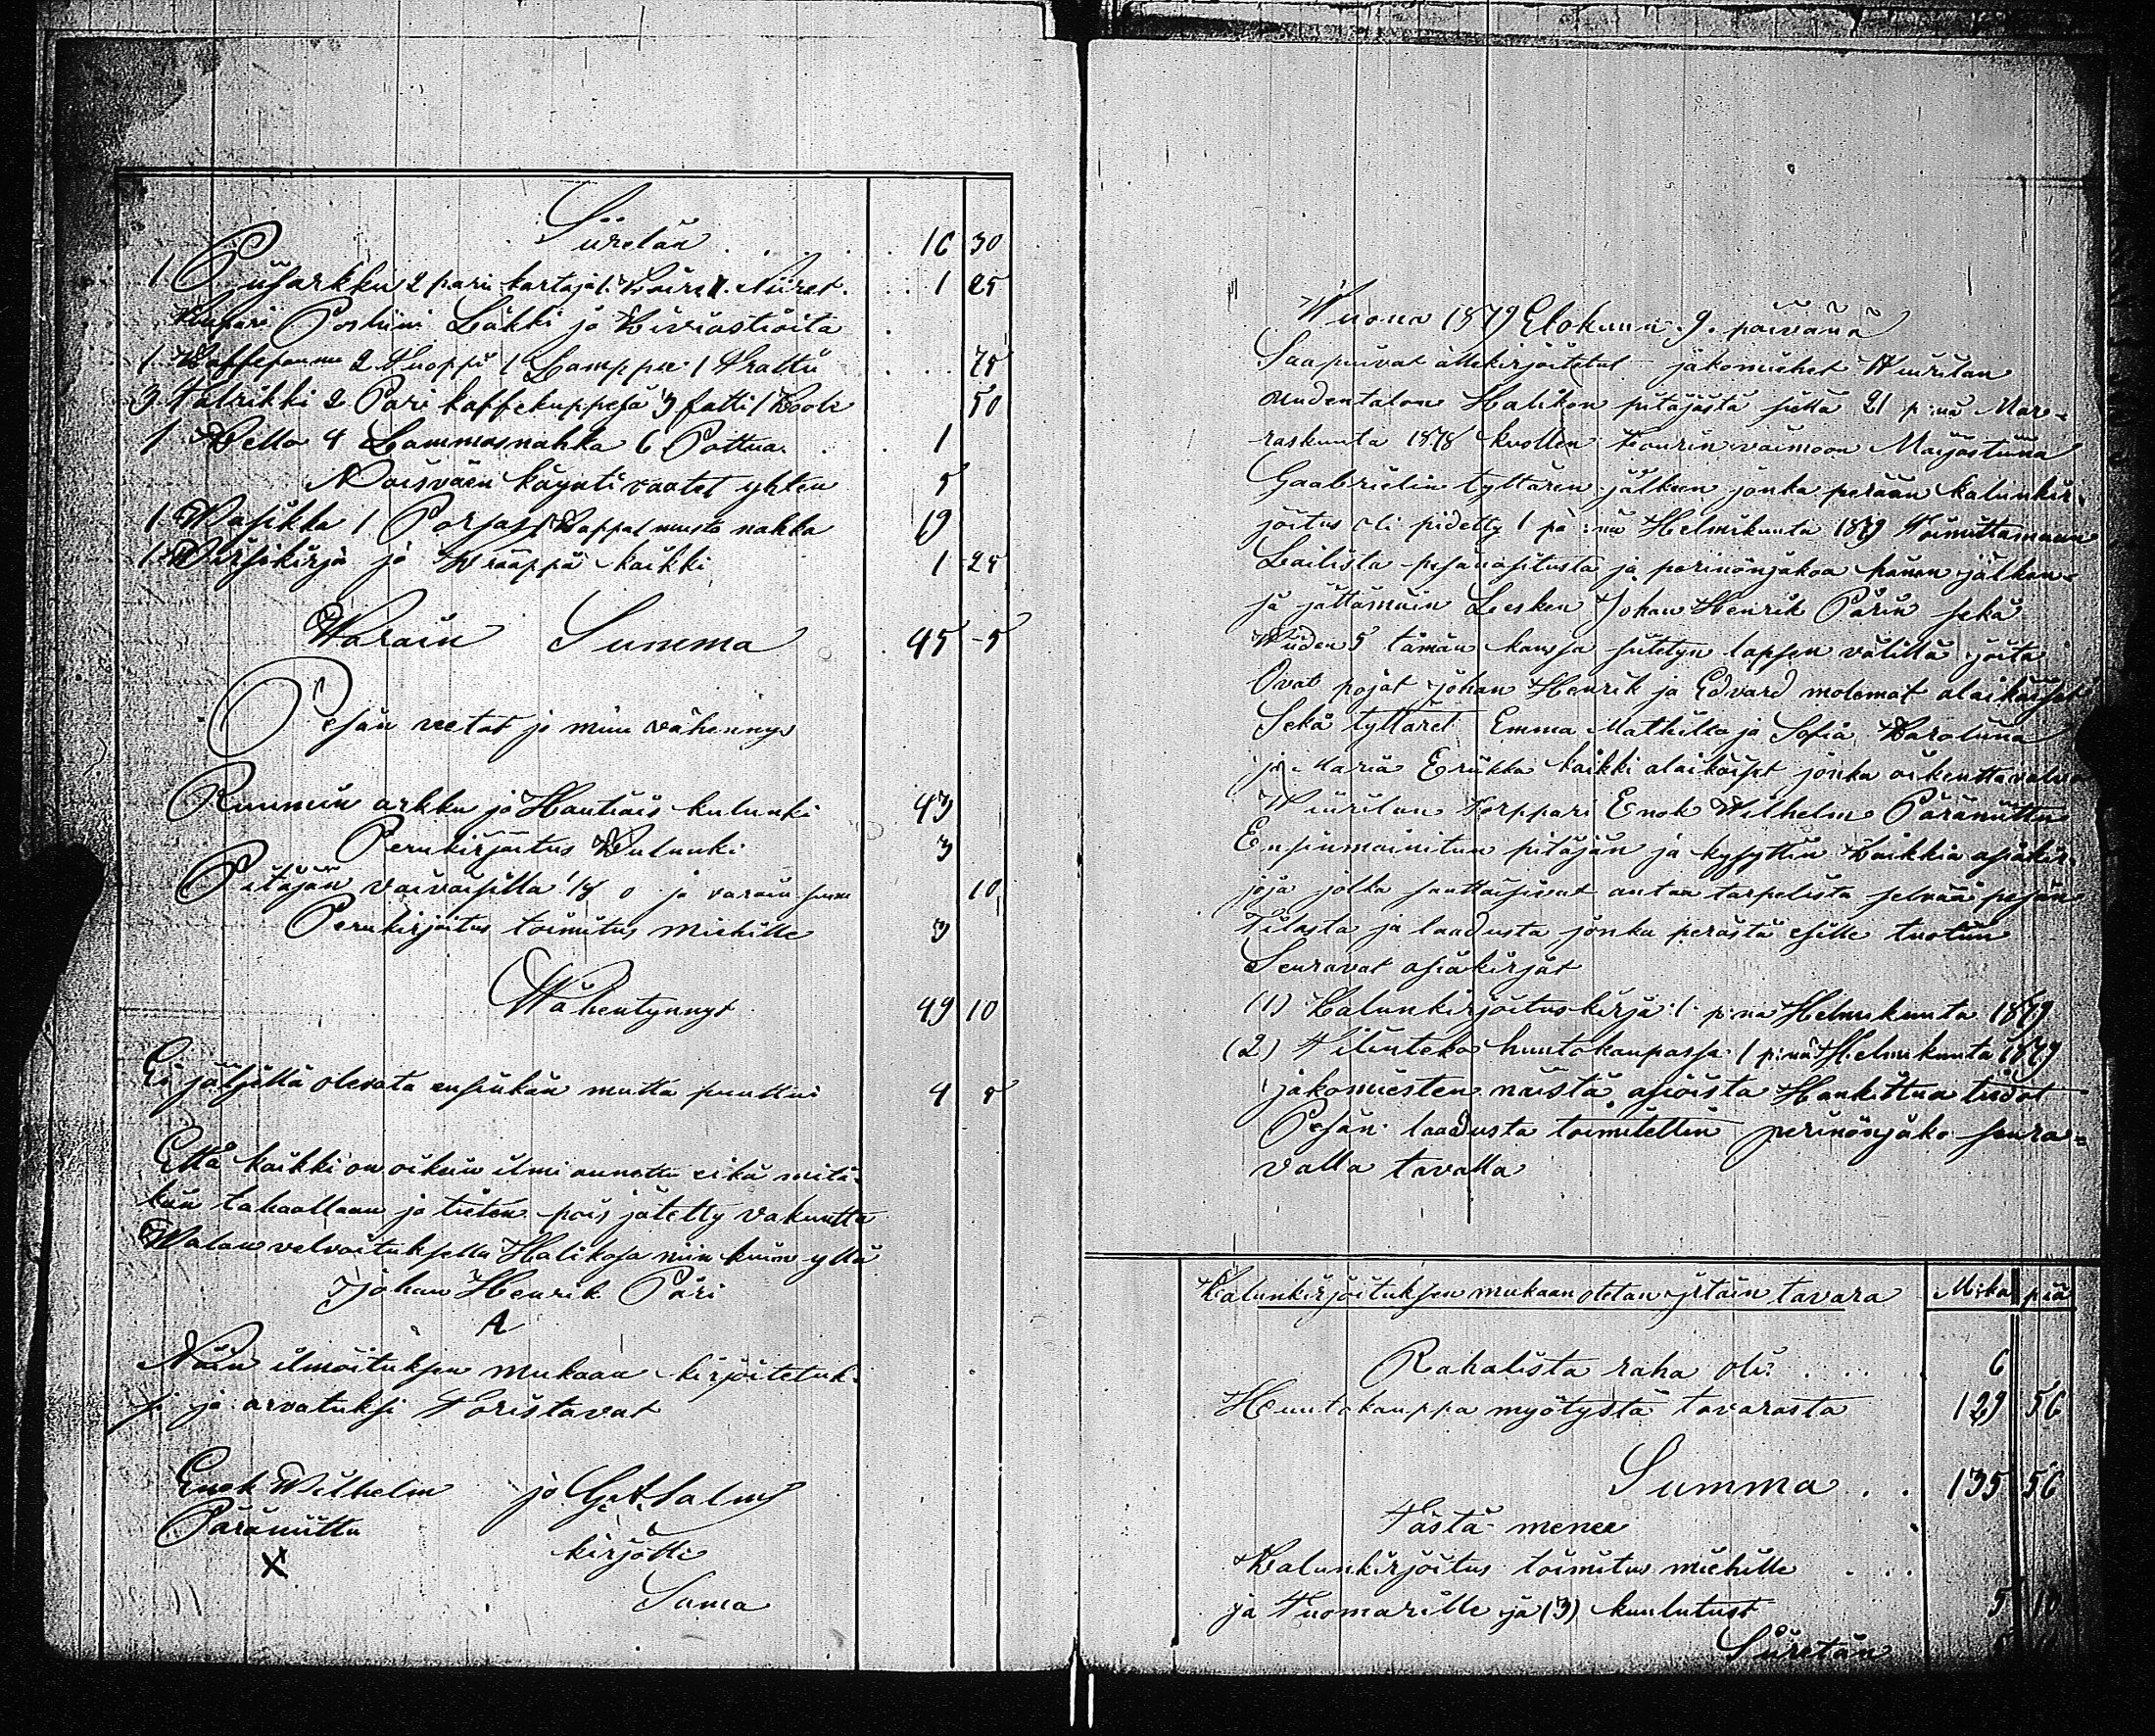 Siiretän . . . . . 16 30
1 Piisarkku 2 pari kartoja 1 . . 1 25
Poslini Läkki ja Kiviastioita .
1 Kaffepannu 2 Tuoppi 1 Lamppu 1 Trattu . . . 75
3 Talrikki 2 Pari kaffekuppeja 3 fatti 1 50
1 Kello 4 Lammasnahka 6 Pottua . . 1
Naisväen käynti vaatet yhten 5
1 Wasikka 1 Porsas 1 Kappal musta nahka 19
1 Wirsikirja ja Krääppä kaikki 1 25
Warain Summa . 45 5
Pesän veetat ja muu vähennys
Ruumin arkku ja Hautiais kulunki 43
Perukirjoitus Kulunki 3
Pitäjän vaivaisilla 1/8 o ja varain summ 10
Perukirjoitus toimitus miehille 3
Wähentynnyt 49 10
Ei jäljellä olevata ensinkän mutta puuttui 4 5
Että kaikki on oikein ilmi annettu eikä mitä-
kän tahaallaan ja tieten pois jätetty vakuutta
Walan velvoituksella Halikosa niin kuin yllä
Johan Henrik Päri
A
Näin ilmoituksen mukaan kirjoitetuk-
si ja arvatuksi Toristavat
Enok Wilhelm ja G. A. Salmi
Päräniittu kirjotti
X
Sama
Wuona 1879 Elokuun 9. päivänä
Saapuivat allekirjoitetut jakomiehet Wiurilan
uudentaloon Halikon pitäjästä siellä 21 p:nä Mar-
raskuuta 1878 kuollen Tourin vaimoon Maijastiina
Gaabrielin tyttären jälkeen jonka perään kalunkir-
joitus oli pidetty 1 pä:nä Helmikuuta 1879 Toimittamaan
Lailista pesänasitusta ja perinönjakoa hänen jälken-
sä jättämäin Lesken Johan Henrik Pärin sekä
Wiiden 5 tämän kanssa siitetyn lapsen välillä joita
Ovat pojat Johan Henrik ja Edvard molemat alaikäiset
Sekä tyttäret Emma Mathilta ja Sofia Karoliina
ja Maria Eriikka kaikki alaikäiset jonka oikeuttavalvo
Wiurilan Torppari Enok Wilhelm Päräniittu
Ensinmainitun pitäjän ja kysyttiin kaikkia asiakir-
joja jotka saattaisivat antaa tarpelista selvää pesän
Tilasta ja laadusta jonka perästä esille tuotiin
Seuravat asiakirjat
(1) Kalunkirjoitus kirja 1 p:nä Helmikuuta 1879
(2) Tilinteko huutokaupassa 1 p:nä Helmikuuta 1879
jakomiesten näistä asioista Hankittua tiedot
Pesän laadusta toimitettiin perinönjako seura-
valla tavalla
Kalunkirjoituksen mukaan otetan irtain tavara M:ka p:iä
Rahalista raha oli . . . . 6
Huutokauppa myötystä tavarasta 129 56
Summa . . 135 56
Tästä menee
Kalunkirjoitus toimitus miehille . . .
ja Tuomarille ja (3) kuulutust 5 10
Siiretän 5